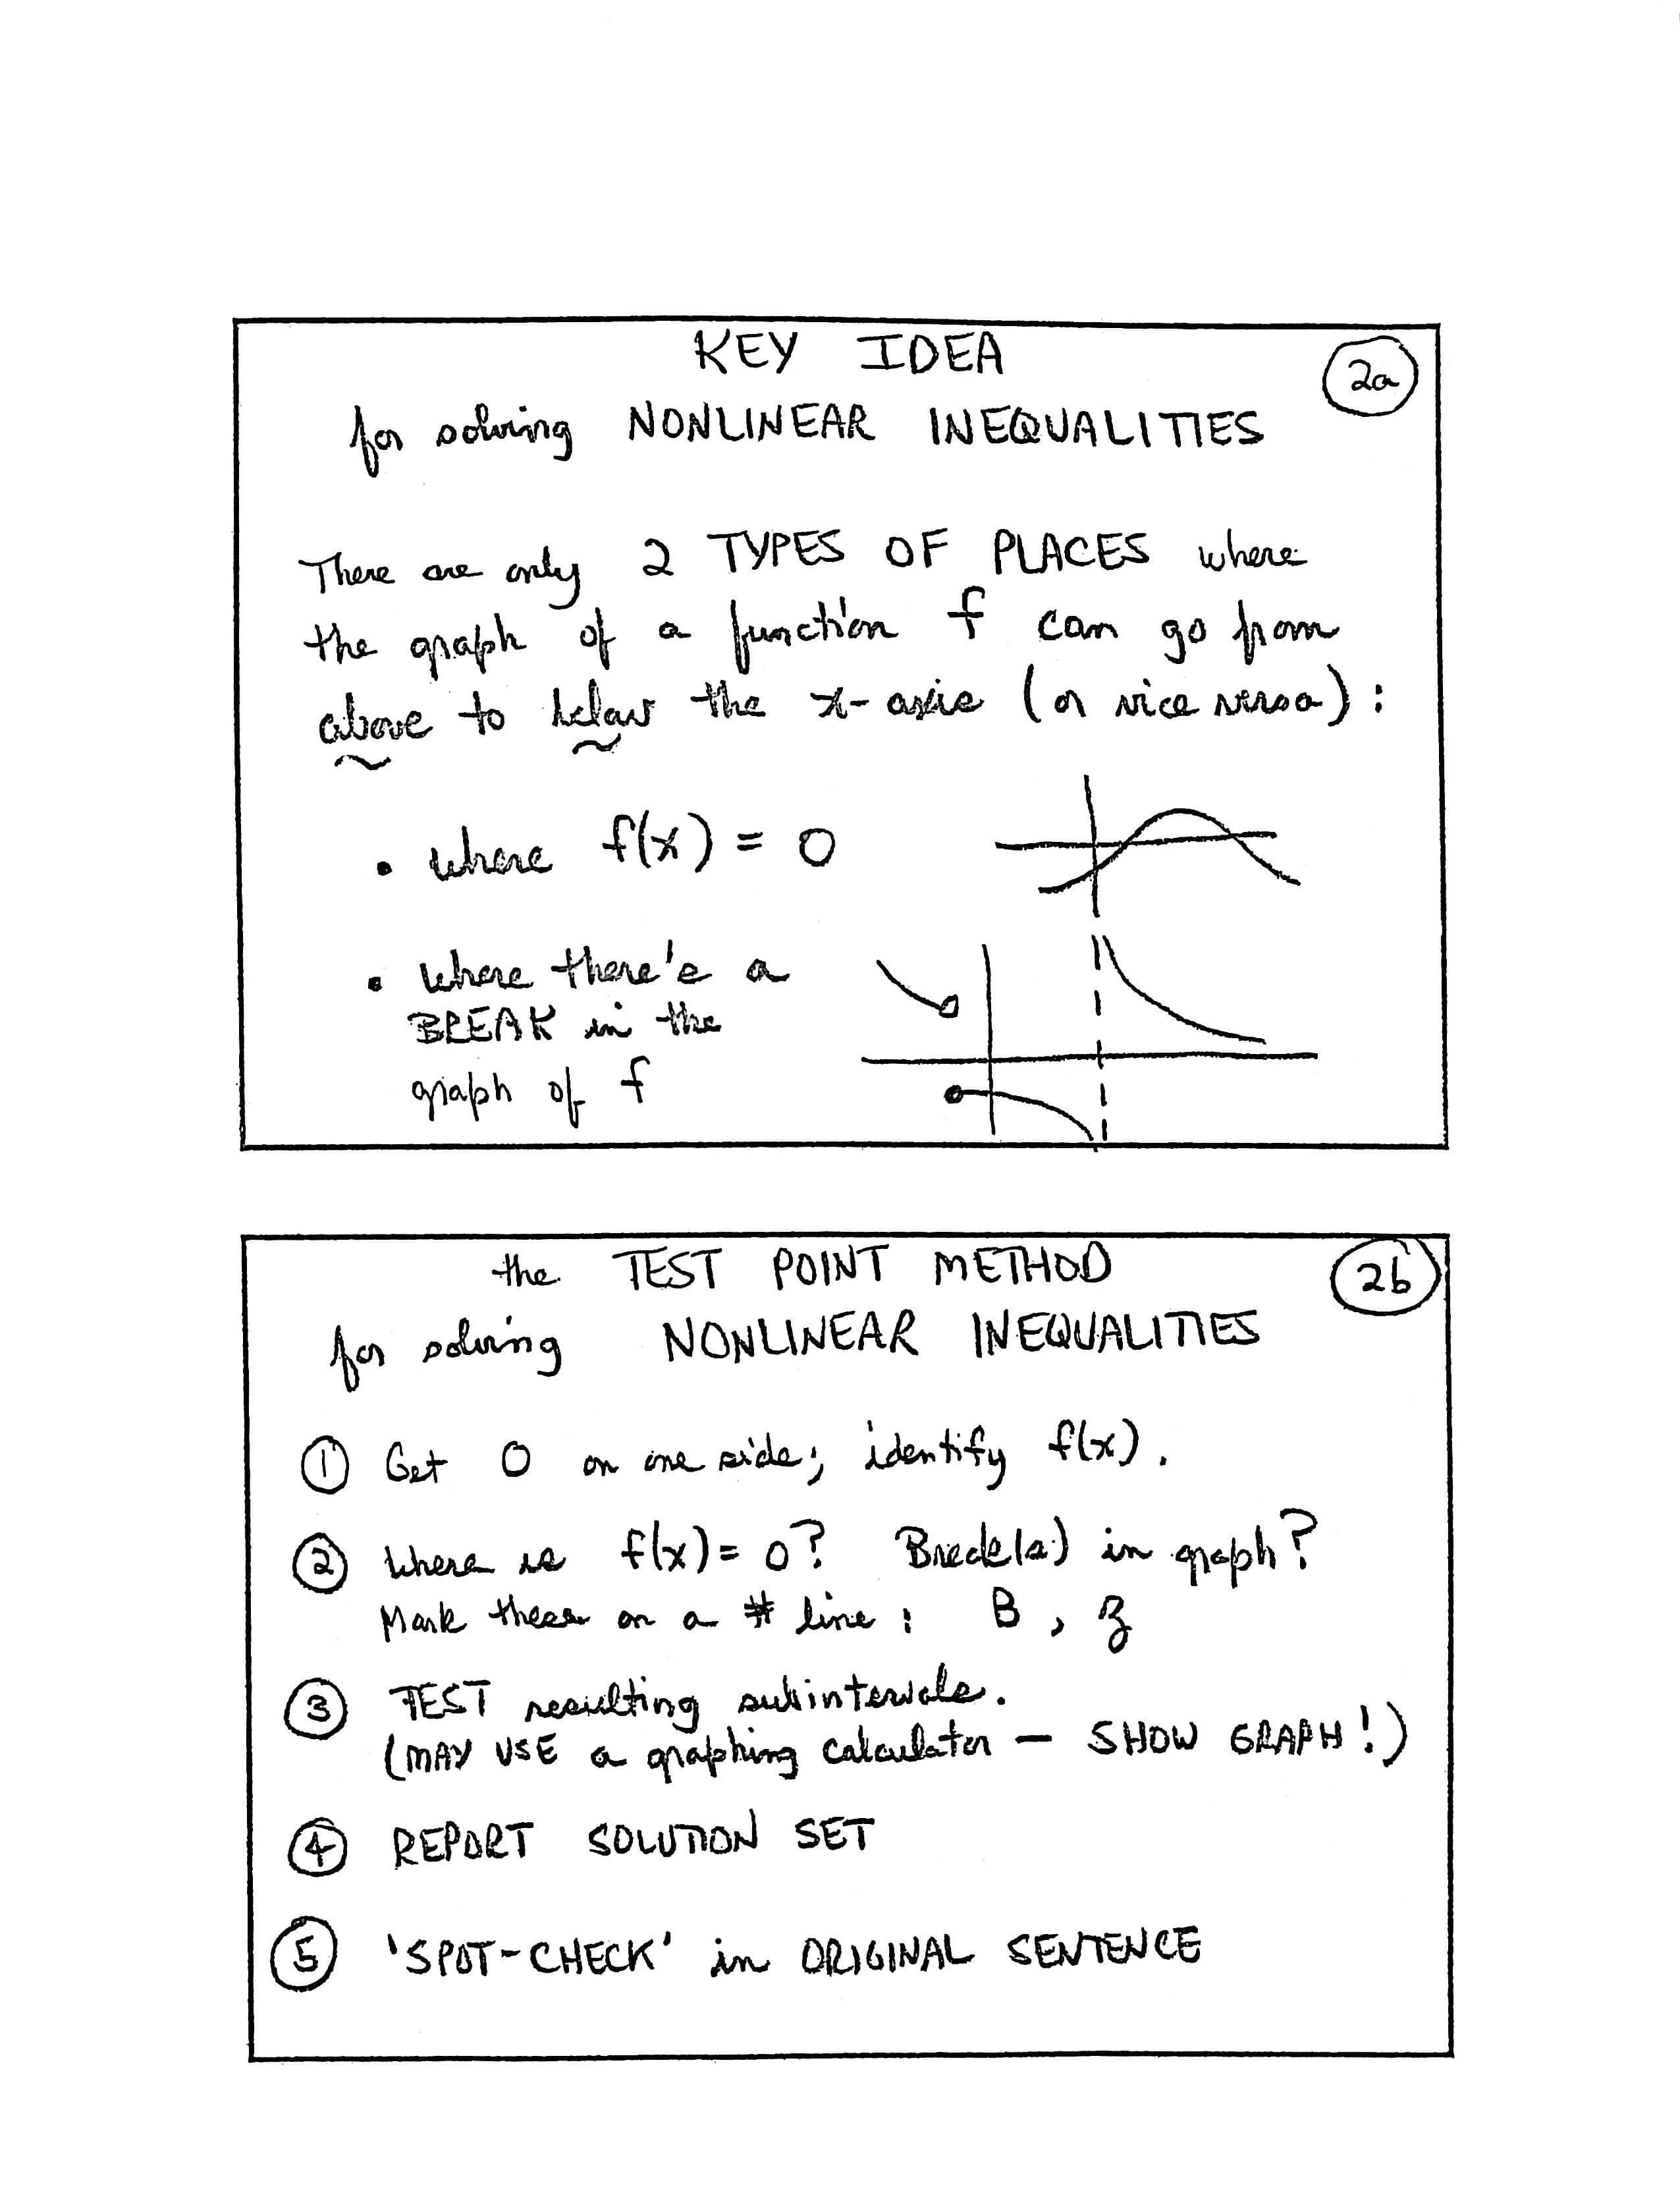 KEY IDEA
2a
for solving NONLINEAR INEQUALITIES
There are only 2 TYPES OF PLACES where
the graph of a function f can go from
above to below the x-axis (or vice versa):
• where f(x) = 0
• where there's a
BREAK in the
graph of f
the TEST POINT METHOD
2b
for solving NONLINEAR INEQUALITIES
① Get 0 on one side; identify f(x).
② Where is f(x) = 0? Break(s) in graph?
Mark these on a # line: B, z
③ TEST resulting subintervals.
(MAY USE a graphing calculator — SHOW GRAPH!)
④ REPORT SOLUTION SET
⑤ 'SPOT-CHECK' in ORIGINAL SENTENCE